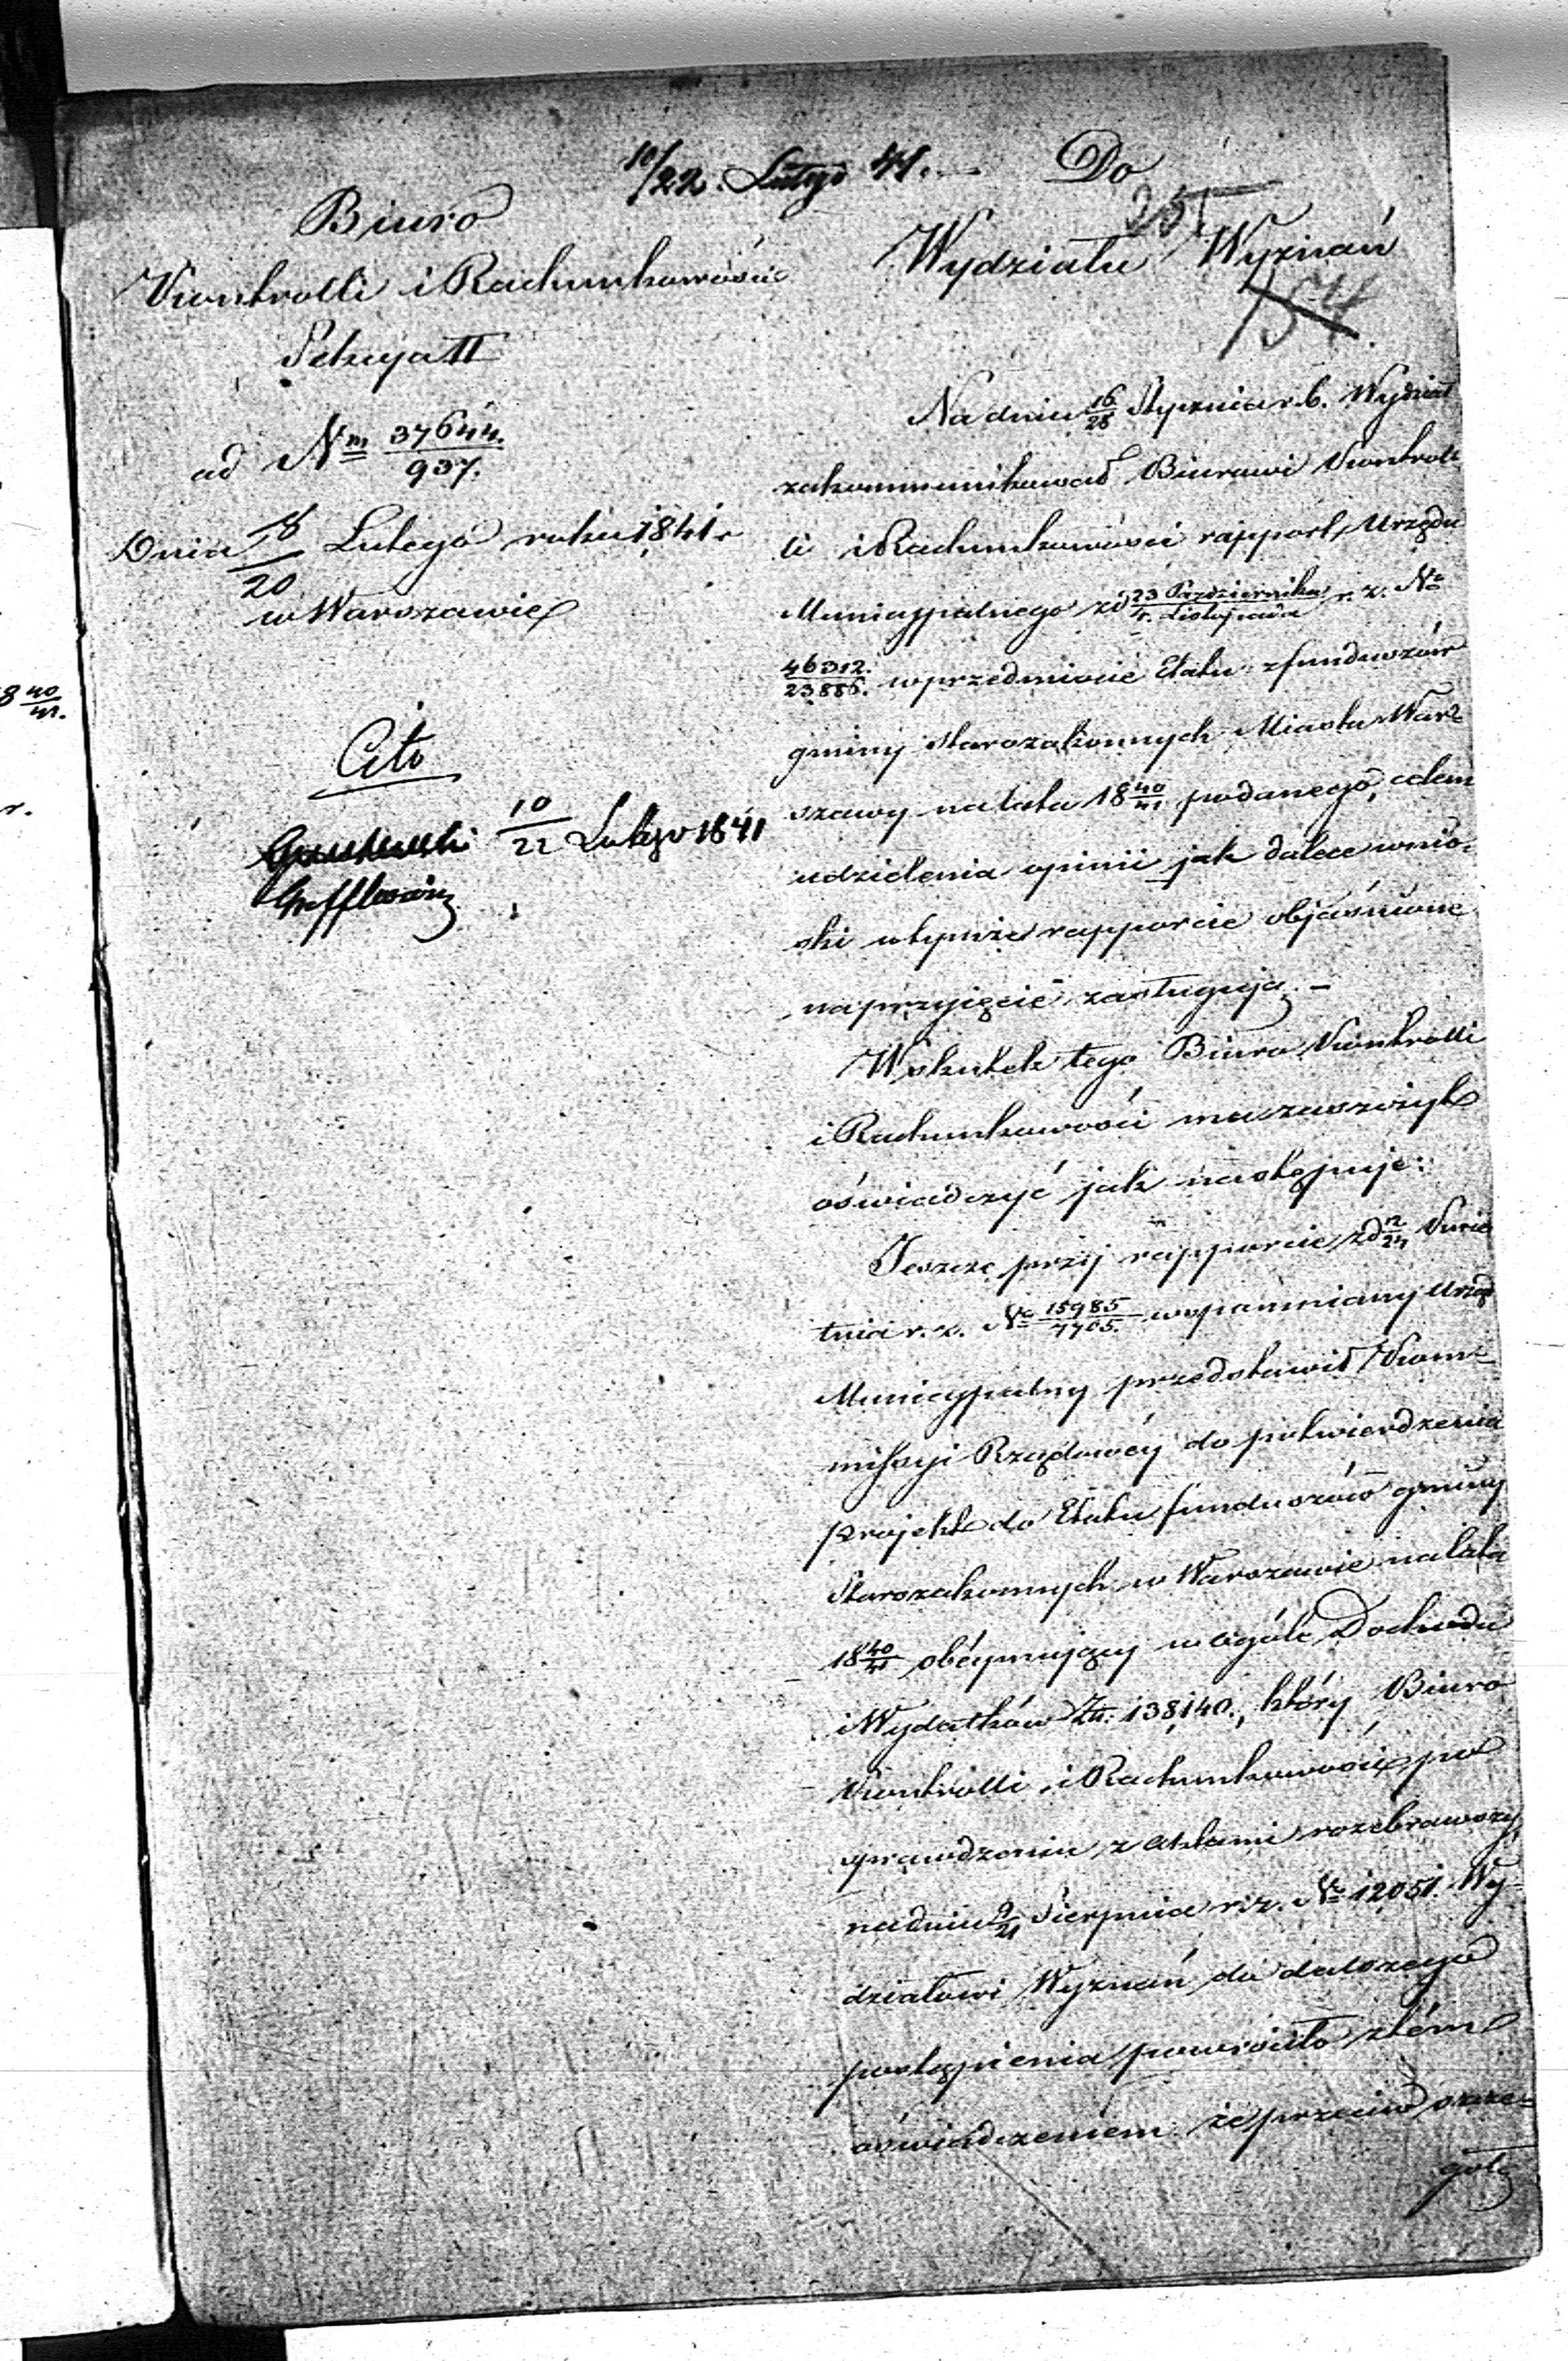 10/22. Lutego 41.
Biuro
Kontrolli i Rachunkowości
Sekcya II
ad Nm 37644./937.
Dnia 8/20 Lutego roku 1841.
w Warszawie
Cito
10/22 Lutego 1841
Do
251
Wydziału Wyznań
154.
Na dniu 16/28 Stycznia r. b. Wydział
zakommunikował Biurowi Kontrol-
li i Rachunkowości rapport Urzędu
Municypalnego z d 23 Października/4. Listopada r. z. No
46312./23886. w przedmiocie Etatu z funduszów
gminy Starozakonnych Miasta War-
szawy na lata 18 40/41 podanego, celem
udzielenia opinii jak dalece wnio-
ski w tymże rapporcie objaśnione
na przyjęcie zasługują. -
W skutek tego Biuro Kontrolli
i Rachunkowości ma zaszczyt
oświadczyć jak następuje:
Jeszcze przy rapporcie z d 12/24 Kwie
tnia r. z. No 15985/7705. wspomniany Urząd
Municypalny przedstawił Kom-
missyi Rządowéy do potwierdzenia
projekt do Etatu funduszów gminy
Starozakonnych w Warszawie na lata
18 40/41 obéymujący w ogóle Dochodu
i Wydatków Złt. 138,140., który Biuro
Kontrolli i Rachunkowości, po
sprawdzeniu z Aktami rozebrawszy,
na dniu 9/21 Sierpnia r. z. No 12051. Wy-
działowi Wyznań do dalszego
postąpienia powróciło z tém
oświadczeniem: że przeciw szcze-
góło